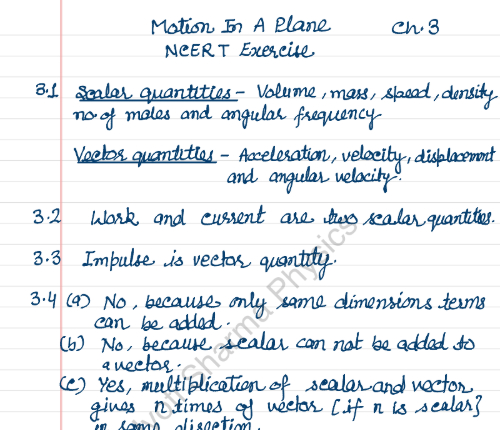 Motion In A Plane Ch. 3
NCERT Exercise
3.1 Scalar quantities - Volume, mass, speed, density
no. of moles and angular frequency
Vector quantities - Acceleration, velocity, displacement
and angular velocity.
3.2 Work and current are two scalar quantities.
3.3 Impulse is vector quantity.
3.4 (a) No, because only same dimensions terms
can be added.
(b) No, because scalar can not be added to
a vector.
(c) Yes, multiplication of scalar and vector
gives n times of vector [if n is scalar}
in same direction.
Sharma Physics